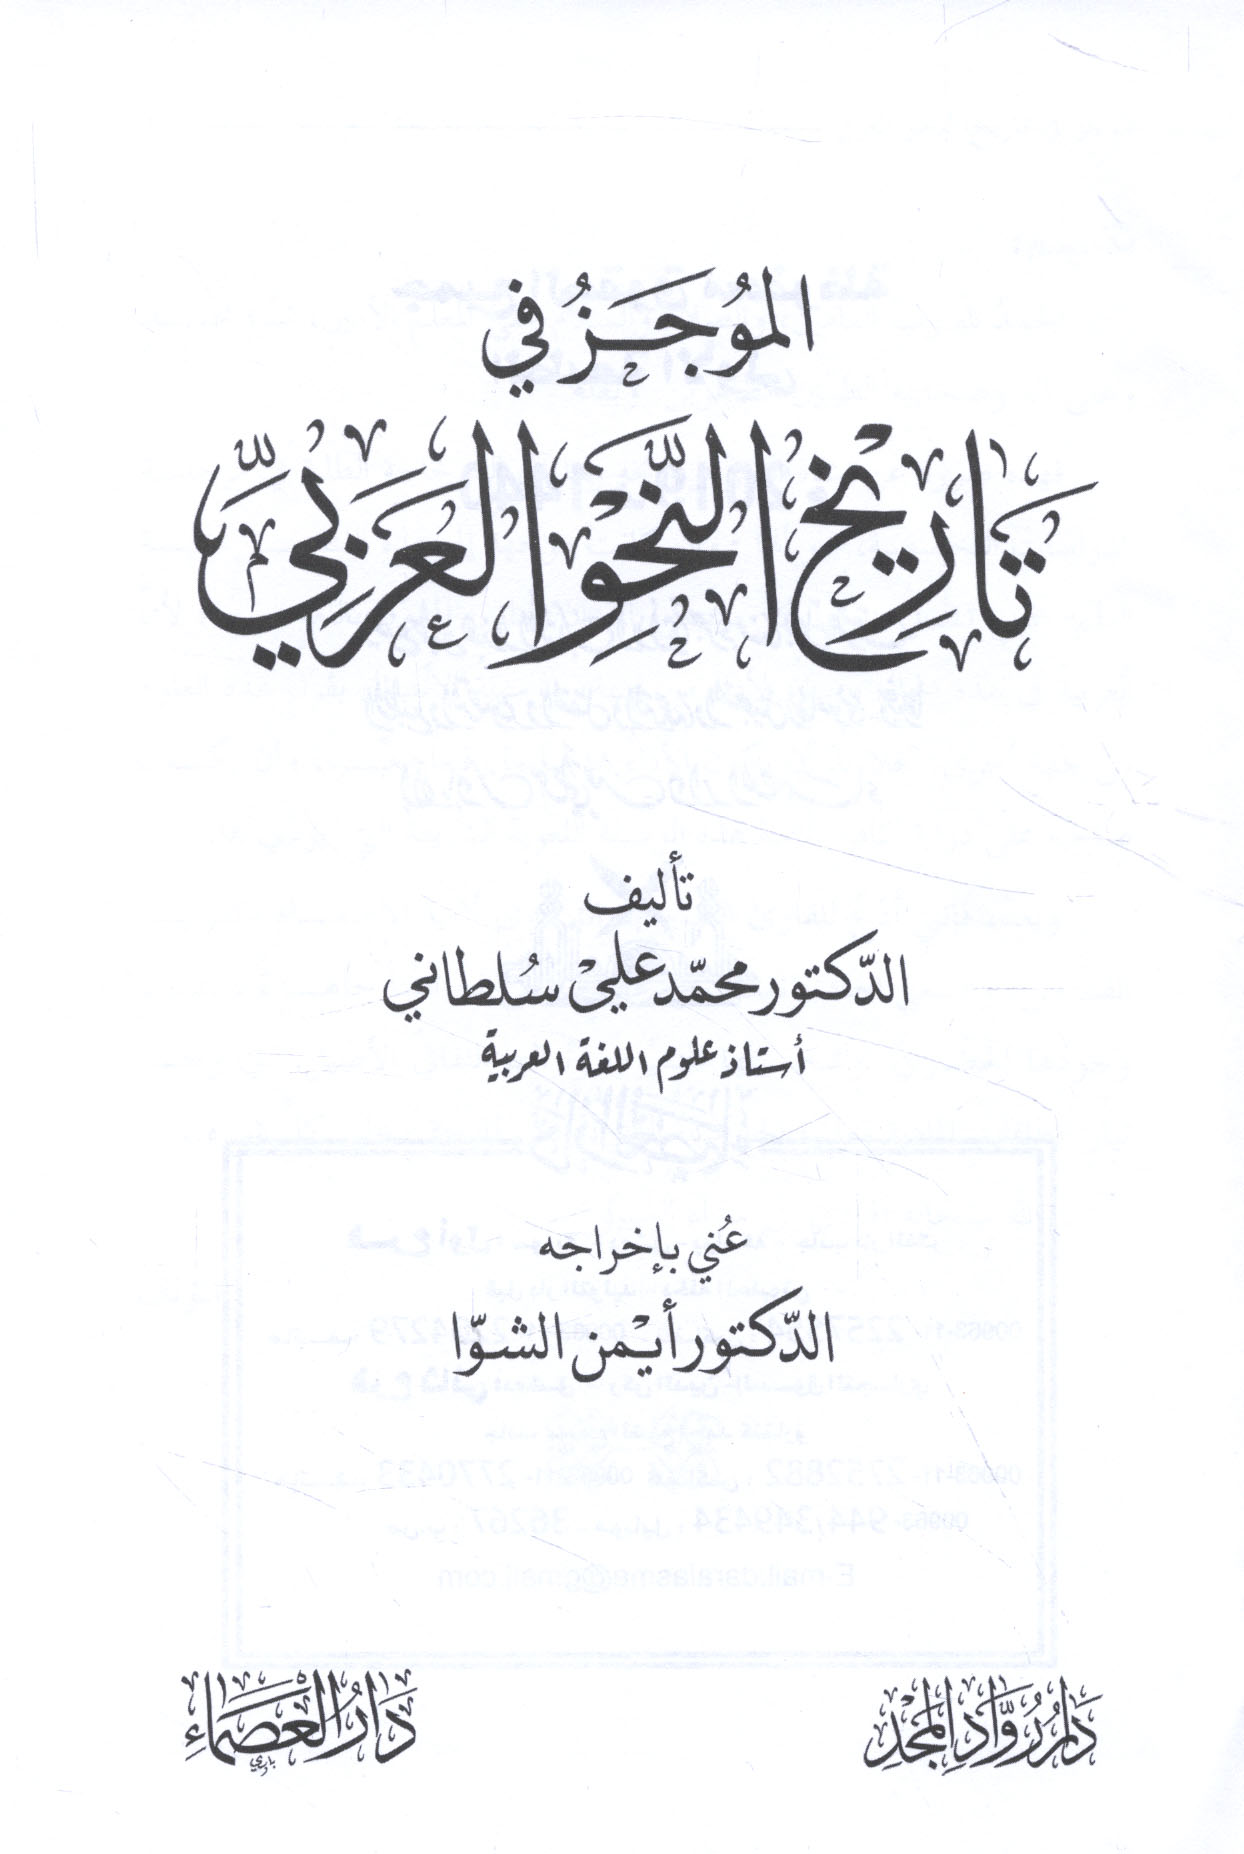 الموجز في
تاريخ النحو العربي
تأليف
الدكتور محمد علي سلطاني
أستاذ علوم اللغة العربية
عُني بإخراجه
الدكتور أيمن الشوّا
دار روّاد المجد
دار العصماء